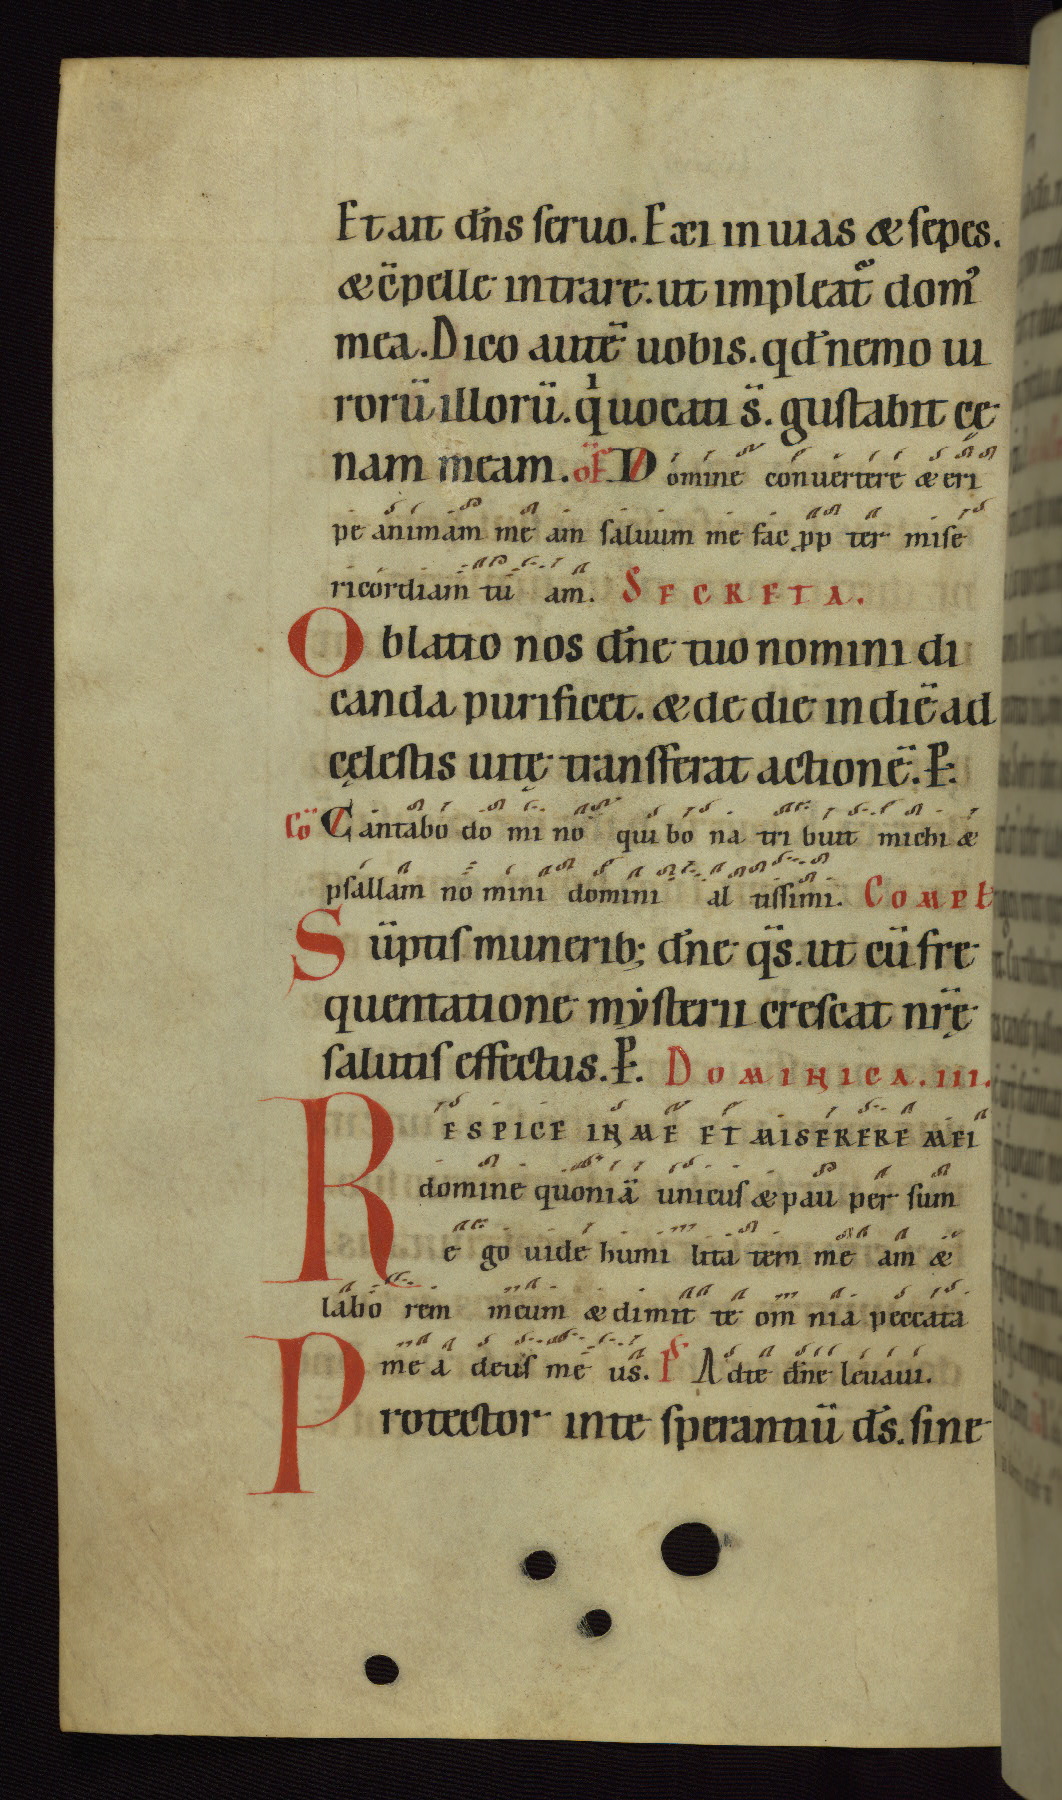 Et ait dn̄s seruo. Exi in uias & sepes.
& c̄pelle intrare. ut impleat᷑ dom᷒
mea. Dico autē uobis. qd̄ nemo ui
rorū illorū. qͥ uocati s̄. gustabit cę
nam meam. of̄. Domine conuertere & eri
pe animam me am saluum me fac pp ter mise
ricordiam tu am. SECRETA.
Oblatio nos dn̄e tuo nomini di
canda purificet. & de die in diē ad
cęlestis uitę transferat actionē. P.
Cō Cantabo do mi no qui bo na tri buit michi &
psallam no mini domini al tissimi. COMPL
Sūptis munerib; dn̄e qs̄. ut cū fre
quentatione mẏsterii crescat nr̄ę
salutis effectus. P. DOMINICA. III.
RESPICE IN ME ET MISERERE MEI
domine quoniā unicus & pau per sum
e go uide humi lita tem me am &
labo rem meum & dimit te om nia peccata
me a deus me us. Ps Ad te dn̄e leuaui.
Protector in te sperantiū ds̄. sine